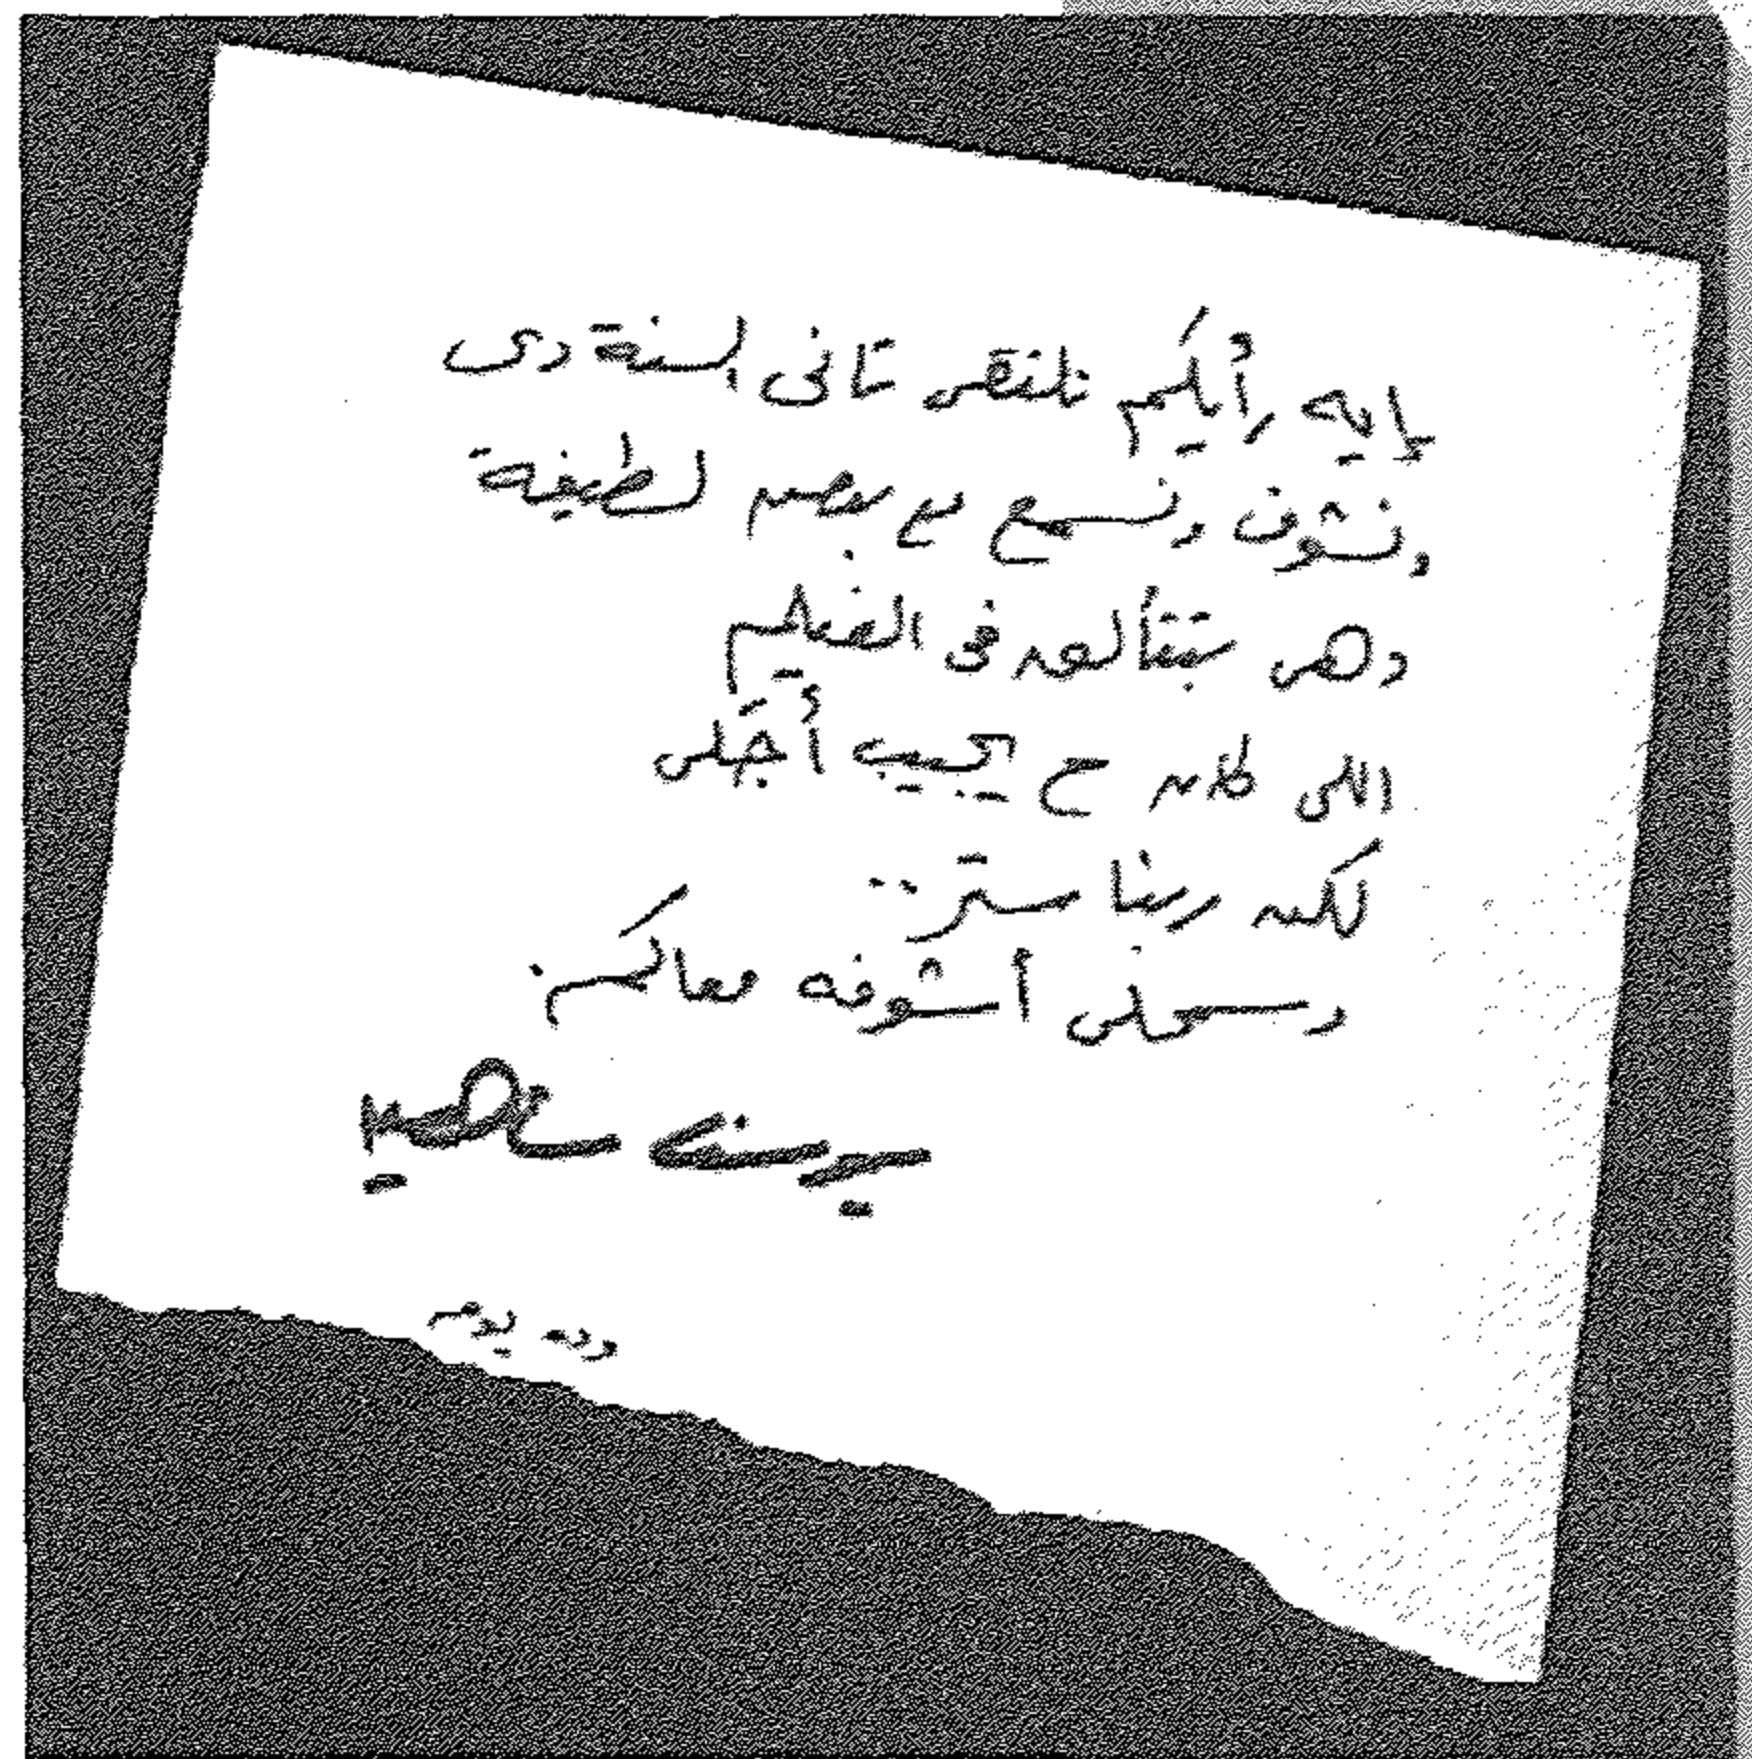 إيه رأيكم نلتقى تانى السنة دى
ونشوف ونسمع مع بعض لطيفة
وهى بتتألق فى الفيلم
اللى كان ح يجيب أجَلى
لكن ربنا ستر..
وسمحلى أشوفه معاكم.
يوسف شاهين
وده يوم